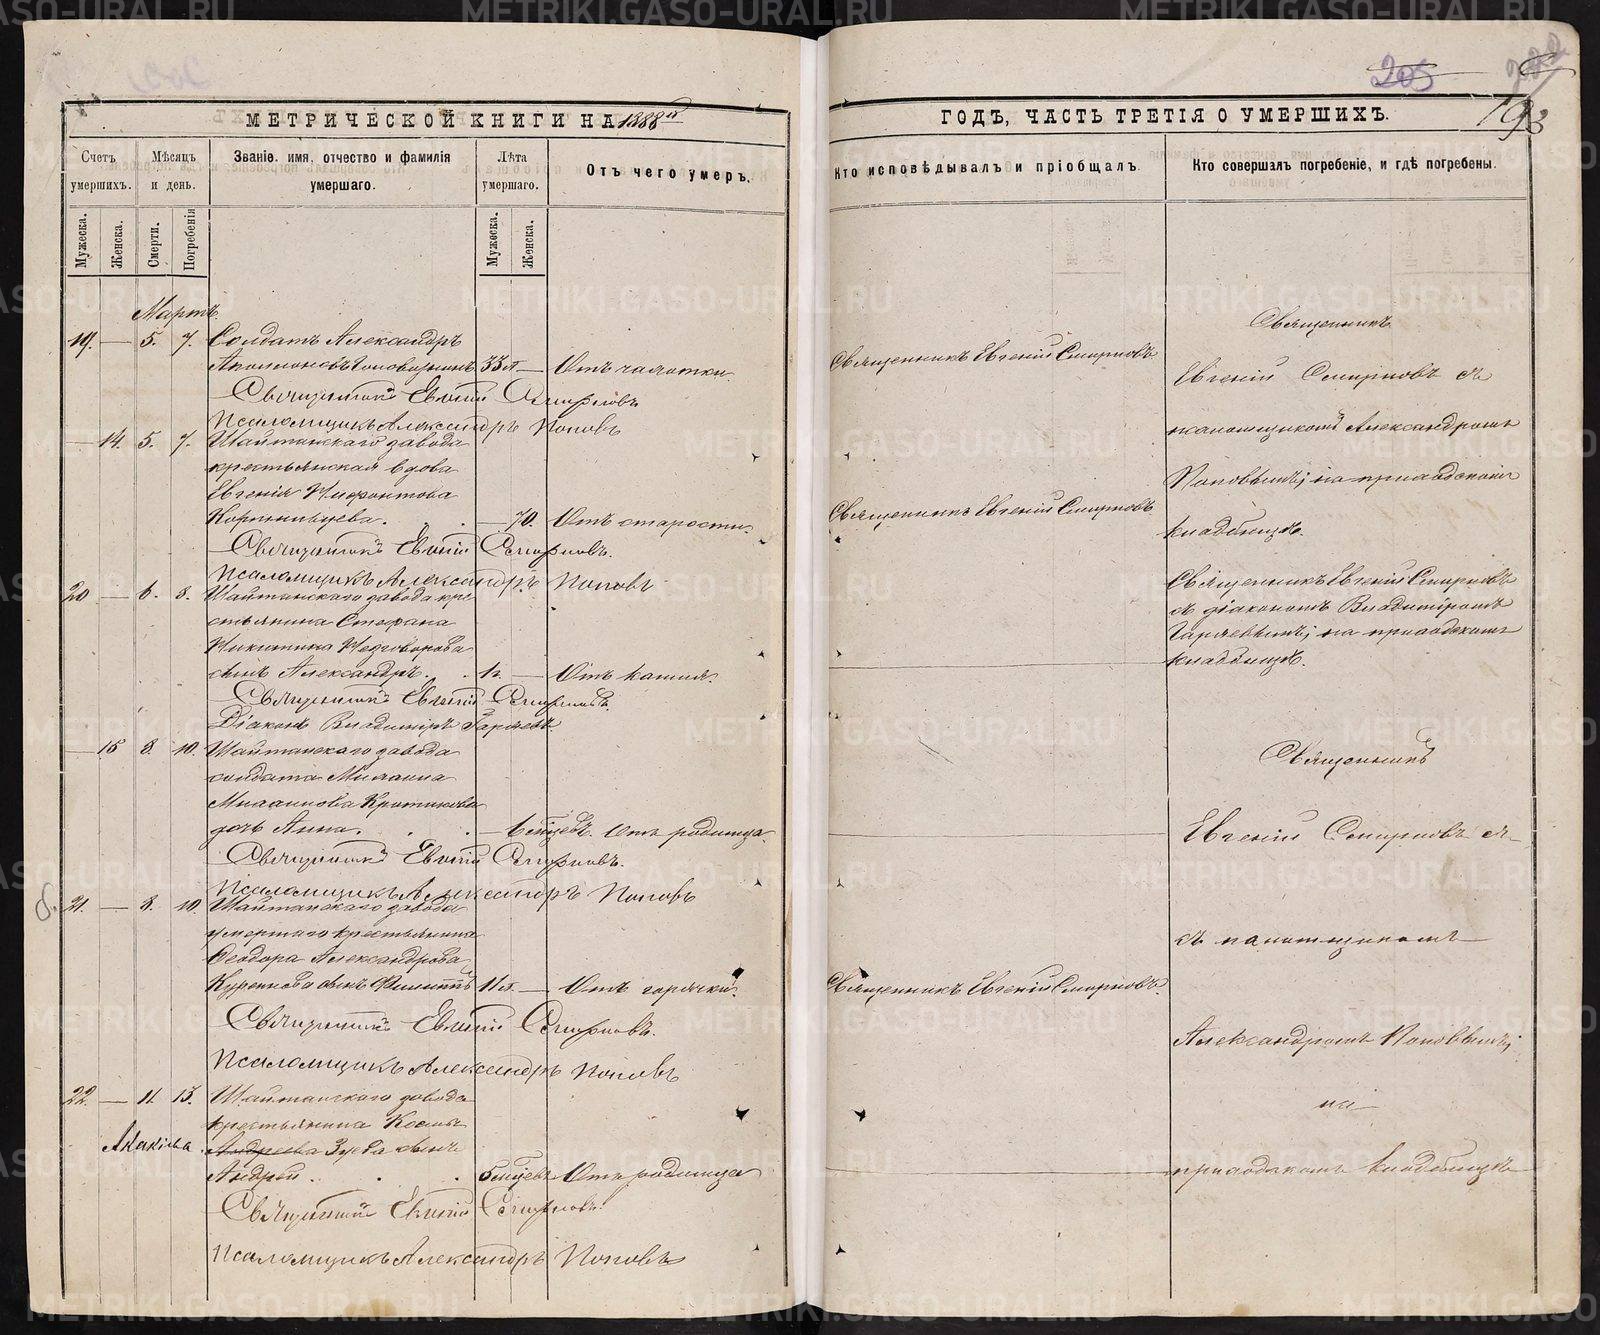 МЕТРИЧЕСКОЙ КНИГИ НА 1888й
Счетъ умершихъ.
Мѣсяцъ и день.
Званіе, имя, отчество и фамилія умершаго.
Лѣта умершаго.
Отъ чего умеръ.
Мужеска.
Женска.
Смерти.
Погребенія
Мужеска.
Женска.
Мартъ
19. — 5. 7. Солдатъ Александръ
33 л — Отъ чахотки.
Священникъ Евгеній Смирновъ
Псаломщикъ Александръ Поповъ
— 14. 5. 7. Шайтанскаго завода
крестьянская вдова
Евгенія
— 70. Отъ старости.
Священникъ Евгеній Смирновъ.
Псаломщикъ Александръ Поповъ
20 — 6. 8. Шайтанскаго завода кре
стьянина Стефана
Никитина
сынъ Александръ. 1 г. — Отъ кашля.
Священникъ Евгеній Смирновъ.
Діаконъ Владиміръ Гаряевъ.
— 15 8. 10. Шайтанскаго завода
солдата
дочь Анна. — 6 мѣсяцевъ. Отъ родимца.
Священникъ Евгеній Смирновъ.
Псаломщикъ Александръ Поповъ
21. — 8. 10. Шайтанскаго завода
умершаго крестьянина
Ѳеодора Александрова
сынъ Филиппъ 11 л. — Отъ горячки.
Священникъ Евгеній Смирновъ.
Псаломщикъ Александръ Поповъ
22. — 11. 13. Шайтанскаго завода
крестьянина Косьмы
Акакіева Андреева Зуева сынъ
Андрей. Отъ родимца
Священникъ Евгеній Смирновъ.
Псаломщикъ Александръ Поповъ
205
193
ГОДЪ, ЧАСТЬ ТРЕТІЯ О УМЕРШИХЪ.
Кто исповѣдывалъ и пріобщалъ.
Кто совершалъ погребеніе, и гдѣ погребены.
Священникъ Евгеній Смирновъ
Священникъ Евгеній Смирновъ
Священникъ Евгеній Смирновъ.
Священникъ
Евгеній Смирновъ съ
псаломщикомъ Александромъ
Поповымъ; на приходскомъ
кладбищѣ.
Священникъ Евгеній Смирновъ
съ діакономъ Владиміромъ
Гаряевымъ; на приходскомъ
кладбищѣ.
Священникъ
Евгеній Смирновъ съ
псаломщикомъ
Александромъ Поповымъ;
на
приходскомъ кладбищѣ
METRIKI.GASO-URAL.RU